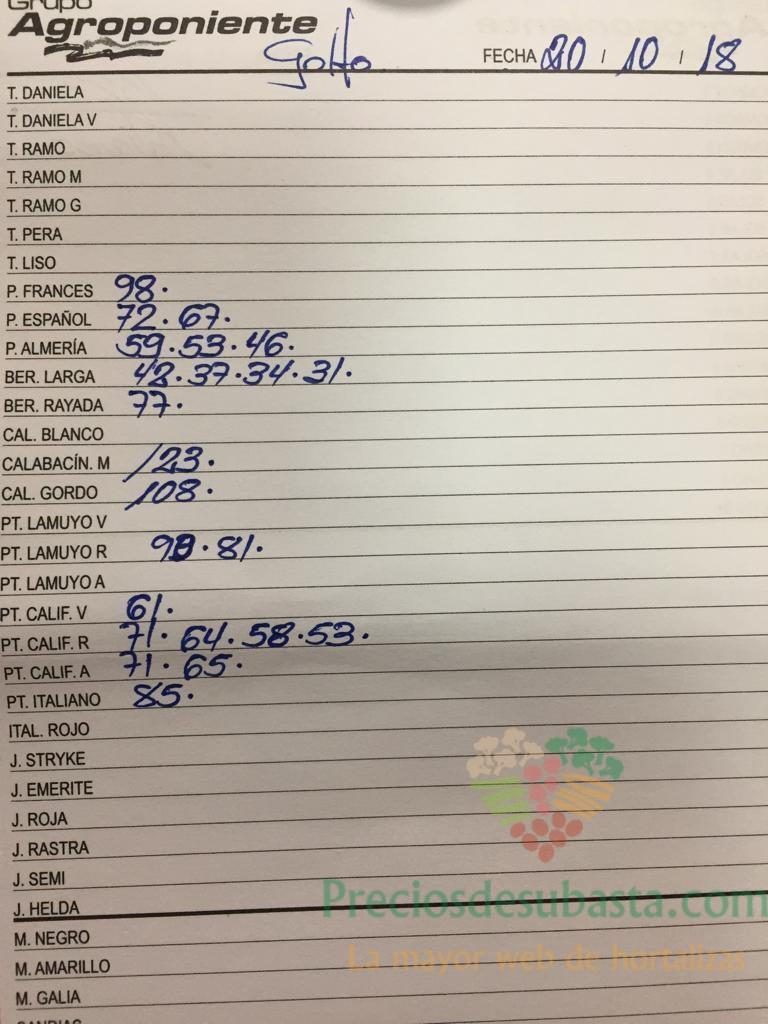 Grupo
Agroponiente
Golfo FECHA 20 / 10 / 18
T. DANIELA
T. DANIELA V
T. RAMO
T. RAMO M
T. RAMO G
T. PERA
T. LISO
P. FRANCES 98.
P. ESPAÑOL 72. 67.
P. ALMERÍA 59. 53. 46.
BER. LARGA 42. 37. 34. 31.
BER. RAYADA 77.
CAL. BLANCO
CALABACÍN. M 123.
CAL. GORDO 108.
PT. LAMUYO V
PT. LAMUYO R 81.
PT. LAMUYO A
PT. CALIF. V 61.
PT. CALIF. R 71. 64. 58. 53.
PT. CALIF. A 71. 65.
PT. ITALIANO 85.
ITAL. ROJO
J. STRYKE
J. EMERITE
J. ROJA
J. RASTRA
J. SEMI
J. HELDA
Preciosdesubasta.com
M. NEGRO
La mayor web de hortalizas
M. AMARILLO
M. GALIA
SANDIAS